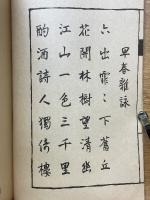 早春雜詠
六出霏霏下舊丘
花開林樹望清幽
江山一色三千里
酌酒詩人獨倚樓